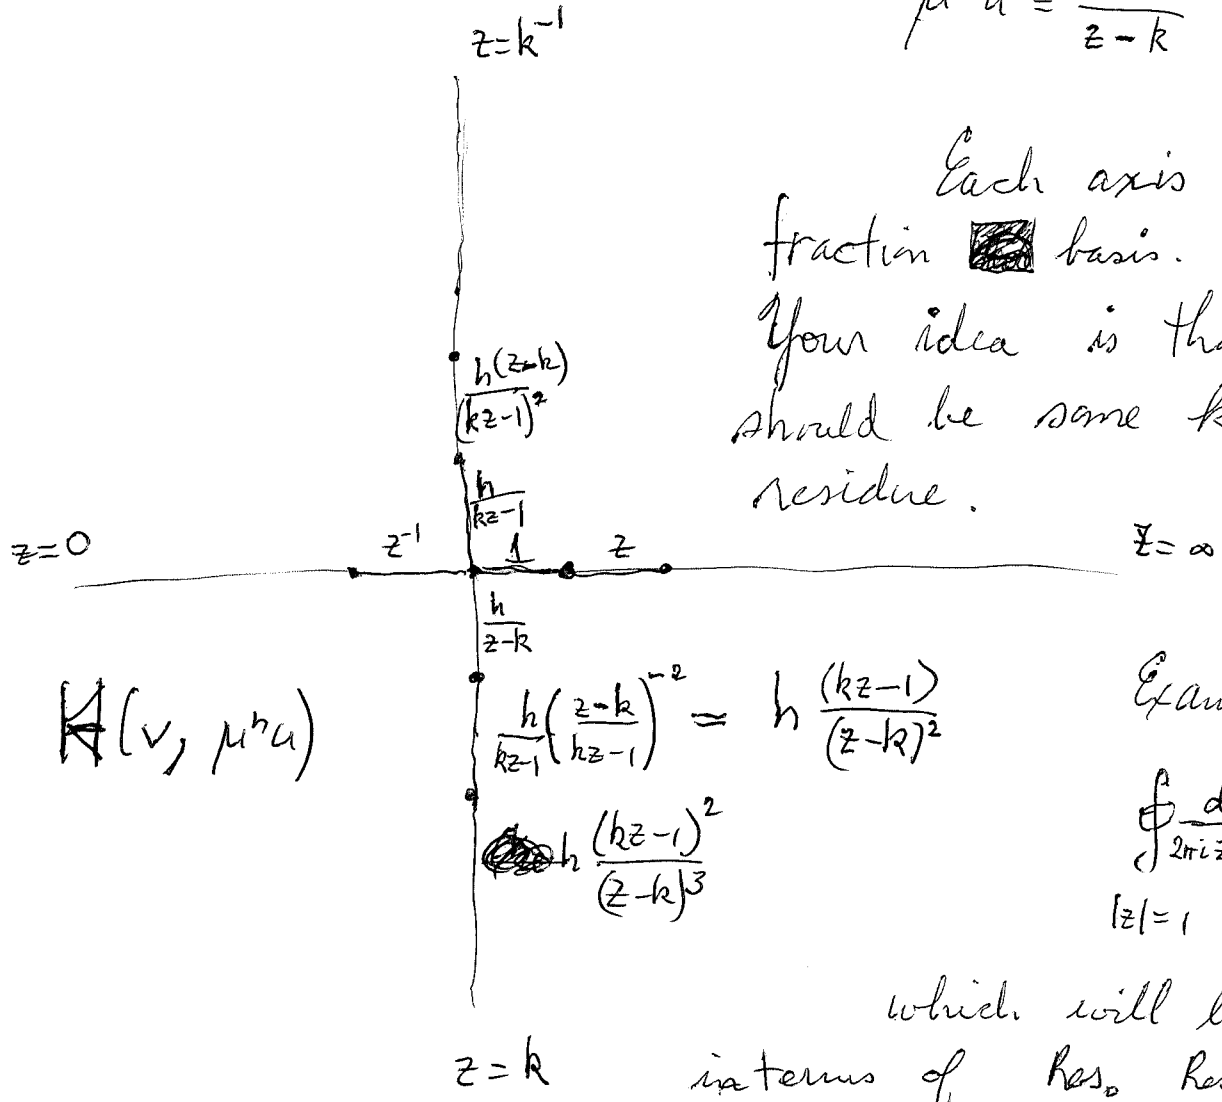 z=k⁻¹
z-k
Each axis
fraction basis.
Your idea is
should be some
residue.
h(z-k)/(kz-1)²
h/(kz-1)
z=0 z⁻¹ 1 z z=∞
h/(z-k)
(v, μⁿu)
h/(kz-1) ((z-k)/(kz-1))⁻² = h (kz-1)/(z-k)²
h (kz-1)²/(z-k)³
∮ 2πi z
|z|=1
which will
in terms of Res₀
z=k